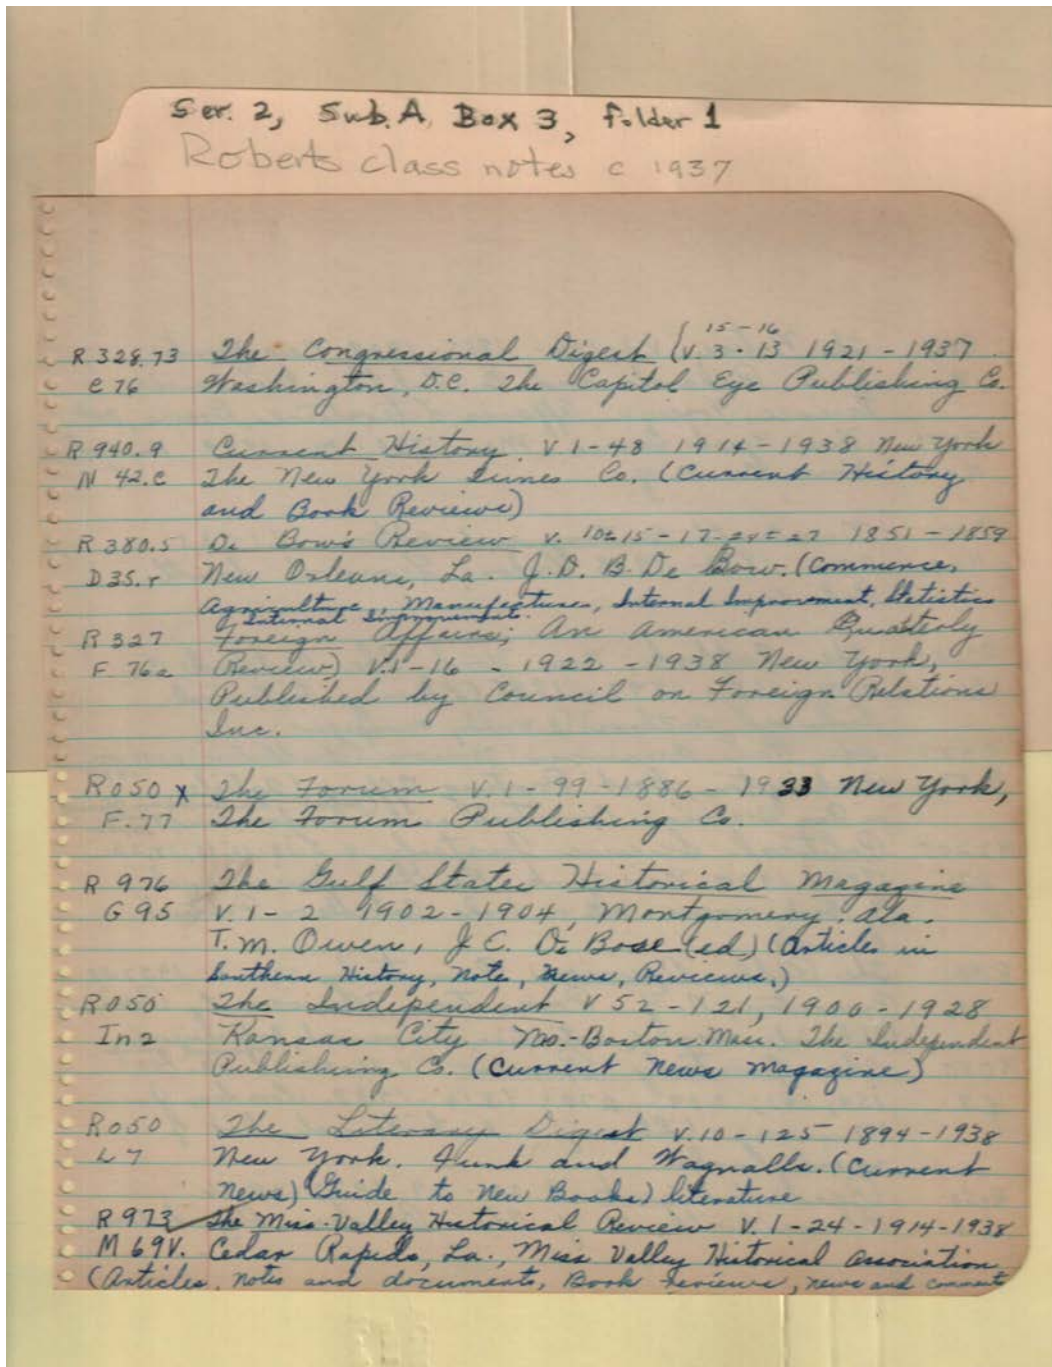 Ser. 2, Sub. A, Box 3, Folder 1
Roberts class notes c 1937
15-16
R 328.73 The Congressional Digest (V. 3-13 1921-1937
C 76 Washington, D.C. The Capitol Eye Publishing Co.
R 940.9 Current History. V 1-48 1914-1938 New York
N 42.c The New York Times Co. (Current History
and Book Reviews)
R 380.5 De Bow's Review v. 1851-1859
D35.r New Orleans, La. J.D.B. De Bow. (Commerce,
Agriculture, Manufactures, Internal Improvement, Statistics
Internal Improvements.
R 327 Foreign Affairs; An American Quaterly
F 76a Review) V.1-16 - 1922-1938 New York,
Published by Council on Foreign Relations
Inc.
R050 x The Forum V.1-99-1886-1933 New York,
F.77 The Forum Publishing Co.
R 976 The Gulf States Historical Magazine
G 95 V.1-2 1902-1904, Montgomery, Ala.
T.M. Owen, J.C. Du Bose (ed) (Articles in
Southern History, Note, News, Reviews,)
R050 The Independent V 52-121, 1900-1928
In2 Kansas City Mo.-Boston Mass. The Independent
Publishing Co. (Current News Magazine)
R050 The Literary Digest V.10-125 1894-1938
L7 New York. Funk and Wagnalls. (Current
News) (Guide to New Books) literature
R973 The Miss. Valley Historical Review V.1-24-1914-1938
M 69V. Cedar Rapids, Ia., Miss Valley Historical Association
(Articles, notes and documents, Book reviews, news and comments